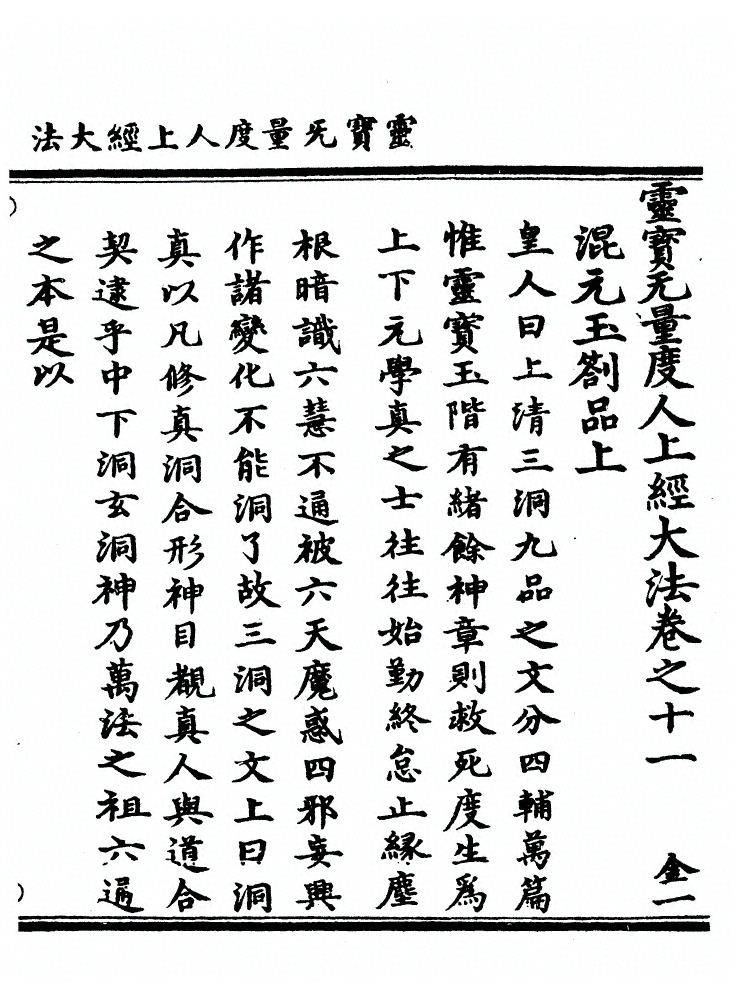 靈寶旡量度人上經大法
靈寶无量度人上經大法卷之十一 金一
混元玉劄品上
皇人曰上清三洞九品之文分四輔萬篇
惟靈寶玉階有緒餘神章則救死度生爲
上下元學真之士往往始勤終怠止緣塵
根暗識六慧不通被六天魔惑四邪妄興
作諸變化不能洞了故三洞之文上曰洞
真以凡修真洞合形神目覩真人與道合
契逮乎中下洞玄洞神乃萬法之祖六通
之本是以